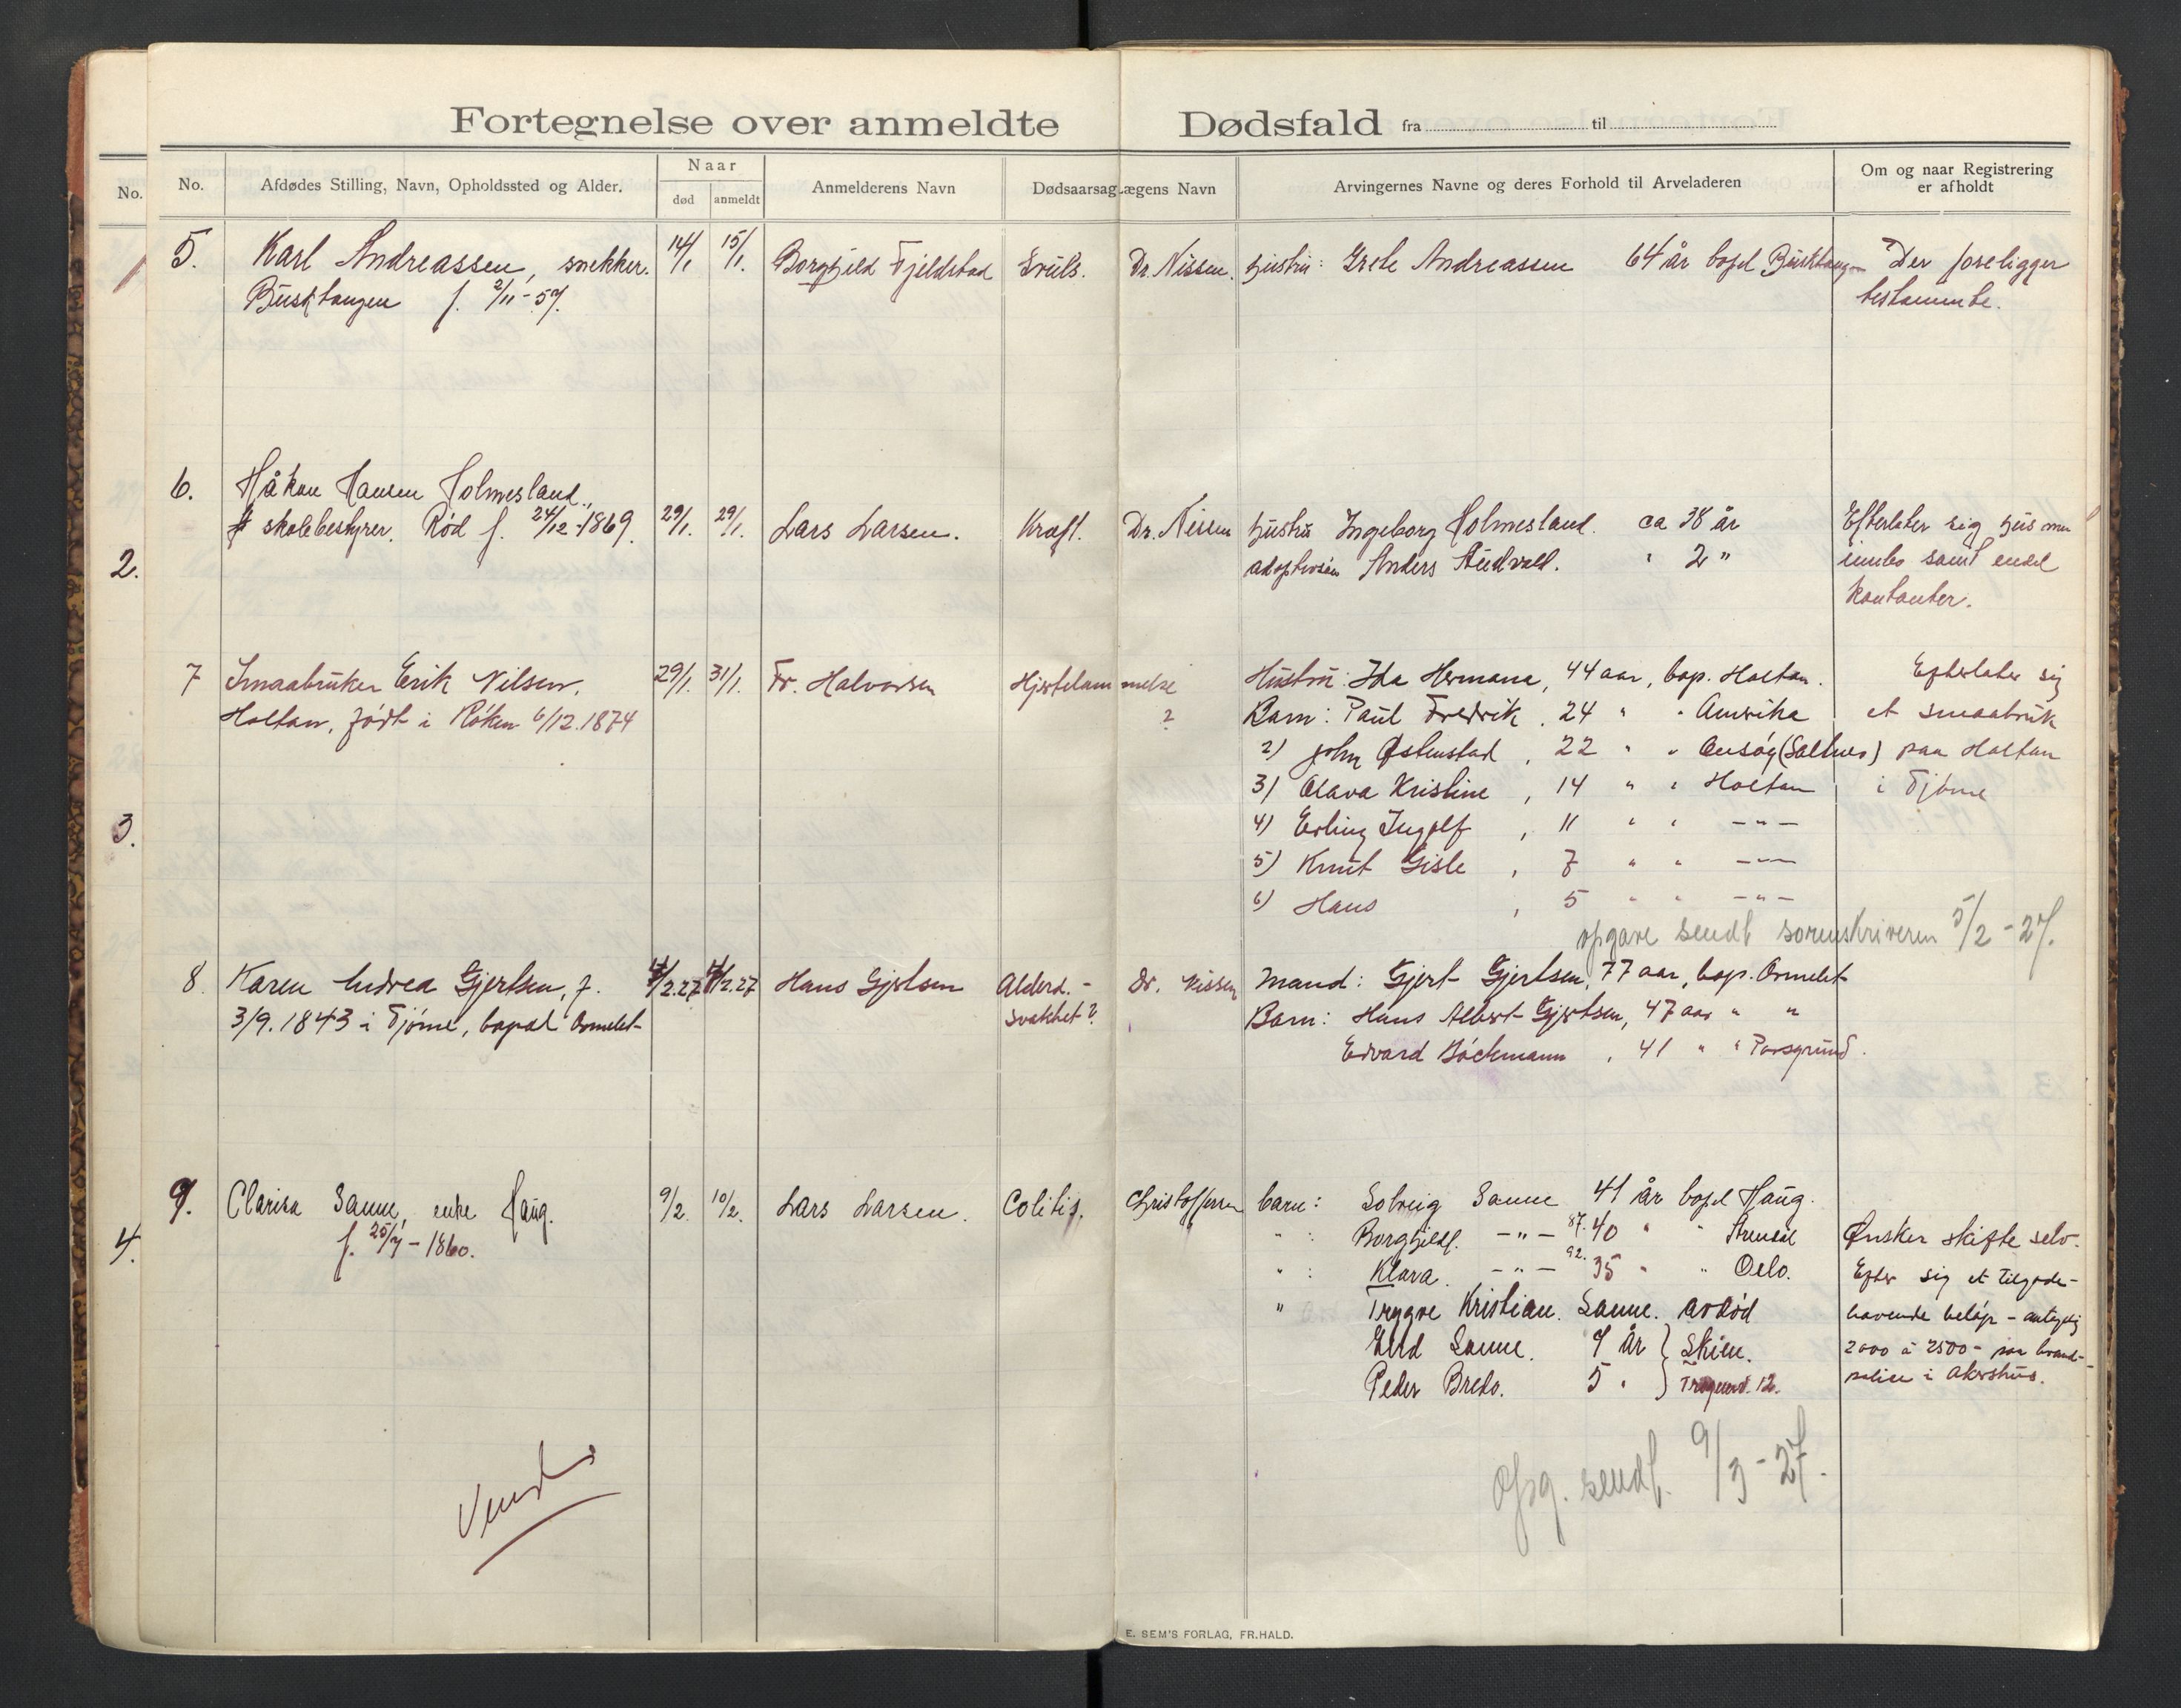 Fortegnelse over anmeldte Dødsfald fra til
No.
No.
Afdødes Stilling, Navn, Opholdssted og Alder.
Naar
død
anmeldt
Anmelderens Navn
Dødsaarsag
Lægens Navn
Arvingernes Navne og deres Forhold til Arveladeren
Om og naar Registrering
er afholdt
5. Karl Andreassen, snekker. 14/1 15/1. Borghild Fjeldstad Dr. Nissen. hustru: Grete Andreassen 64 år bopel Der foreligger
f. 2/11-57. testamente.
6. Håkon Hansen Holmesland.
skolebestyrer. Rød f. 24/12-1869. 29/1. 29/1. Lars Larsen. Kraft. Dr. Nissen hustru Ingeborg Holmesland. ca 38 år Efterlater sig hus
adoptivsøn Anders " 2 " innbo samt endel
kontanter.
2.
7 Smaabruker Erik Nilsen. 29/1. 31/1. Fr. Halvorsen Hjertelammelse Hustru: Ida Hermana, 44 aar, bop. Holtan. Efterlater sig
Holtan, født i Røken 6/12.1874 ? Barn: Paul Fredrik, 24 " " Amerika et smaabruk
2) John Østenstad, 22 " " paa Holtan
3) Olava Kristine, 14 " " Holtan i Tjøme
3.
4) Erling Ingolf, 11 " " -"-
5) Knut Gisle, 7 " " -"-
6) Hans, 5 " " -"-
opgave sendt sorenskriveren 5/2-27.
8. Karen Andrea Gjertsen, f. 4/2.27 4/2.27 Hans Gjertsen Alderd.- Dr. Nissen Mand: Gjert Gjertsen, 77 aar, bop. Ormelet
3/9.1843 i Tjøme, bopæl Ormelet svakhet? Barn: Hans Albert Gjertsen, 47 aar " "
Edvard Bøckmann, 41 " " Porsgrund.
9. Clarisa Sanne, enke Haug. 9/2. 10/2. Lars Larsen. Colitis. Christoffersen barn: Solveig Sanne 41 år bopel Haug.
4. f. 25/7-1860. " : Borghild. -"- 87. 40 " " Arendal Ønsker skifte selv.
" : Klara. -"- 92. 35 " " Oslo. Efter sig et tilgode-
" Trygve Kristian. Sanne. avdød havende beløp -
Sanne. 7 år } Skien. 2000 à 2500-
Peder Bredo. 5 " } 12. i Akershus.
Opg. sendt. 9/3-27.
Vend
E. SEM'S FORLAG, FR.HALD.